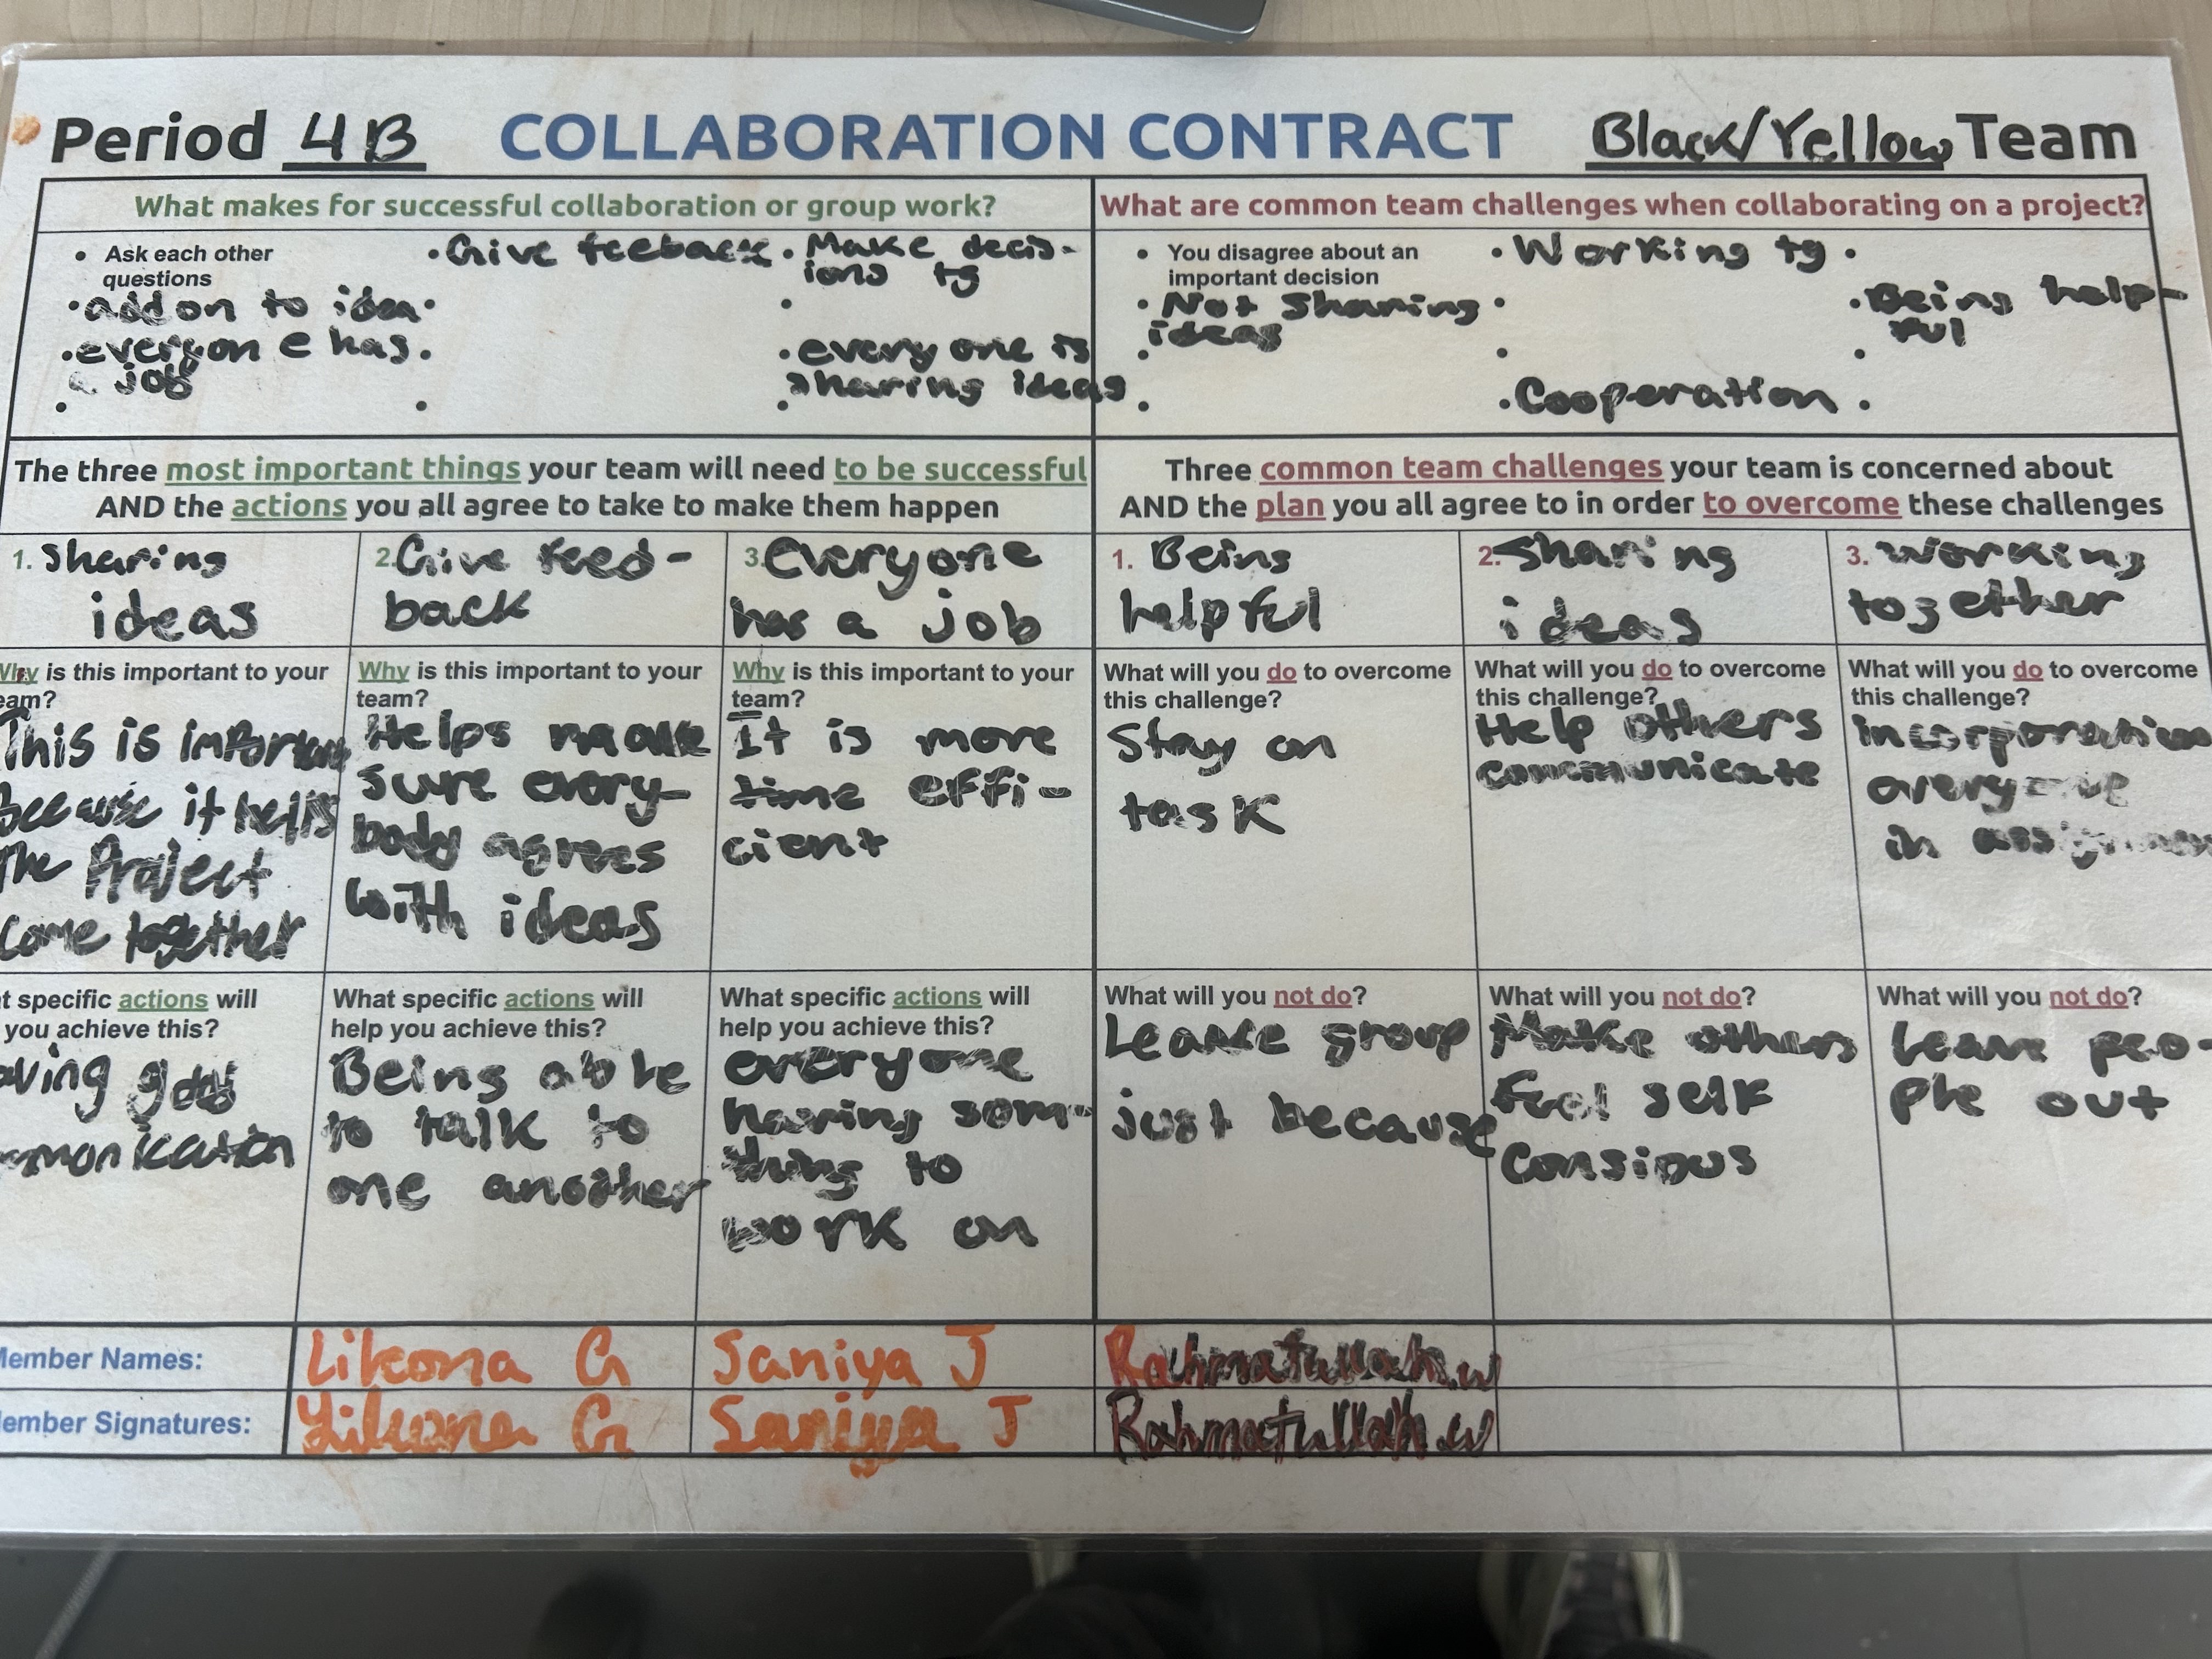 Period 4B COLLABORATION CONTRACT Black/Yellow Team
What makes for successful collaboration or group work?
• Ask each other
questions
• Give feeback
• Make decis-
ions tg
• add on to idea
•
•
• everyone has
a job
•
• every one is
sharing ideas
•
•
What are common team challenges when collaborating on a project?
• You disagree about an
important decision
• Working tg
•
• Not sharing
ideas
•
• Being help-
ful
•
•
•
•
• Cooperation
•
The three most important things your team will need to be successful
AND the actions you all agree to take to make them happen
1. Sharing
ideas
2. Give feed-
back
3. everyone
has a job
Why is this important to your
eam?
This is
because it helps
the Project
Come together
Why is this important to your
team?
Helps make
sure every-
body agrees
with ideas
Why is this important to your
team?
It is more
time effi-
cient
t specific actions will
you achieve this?
What specific actions will
help you achieve this?
Being able
to talk to
one another
What specific actions will
help you achieve this?
everyone
having some
thing to
work on
Three common team challenges your team is concerned about
AND the plan you all agree to in order to overcome these challenges
1. Being
helpful
2. Sharing
ideas
3. Working
together
What will you do to overcome
this challenge?
Stay on
task
What will you do to overcome
this challenge?
Help others
communicate
What will you do to overcome
this challenge?
in
What will you not do?
Leave group
just because
What will you not do?
Make others
feel self
consious
What will you not do?
Leave peo-
ple out
ember Names:
Likona G
Saniya J
ember Signatures:
Saniya J